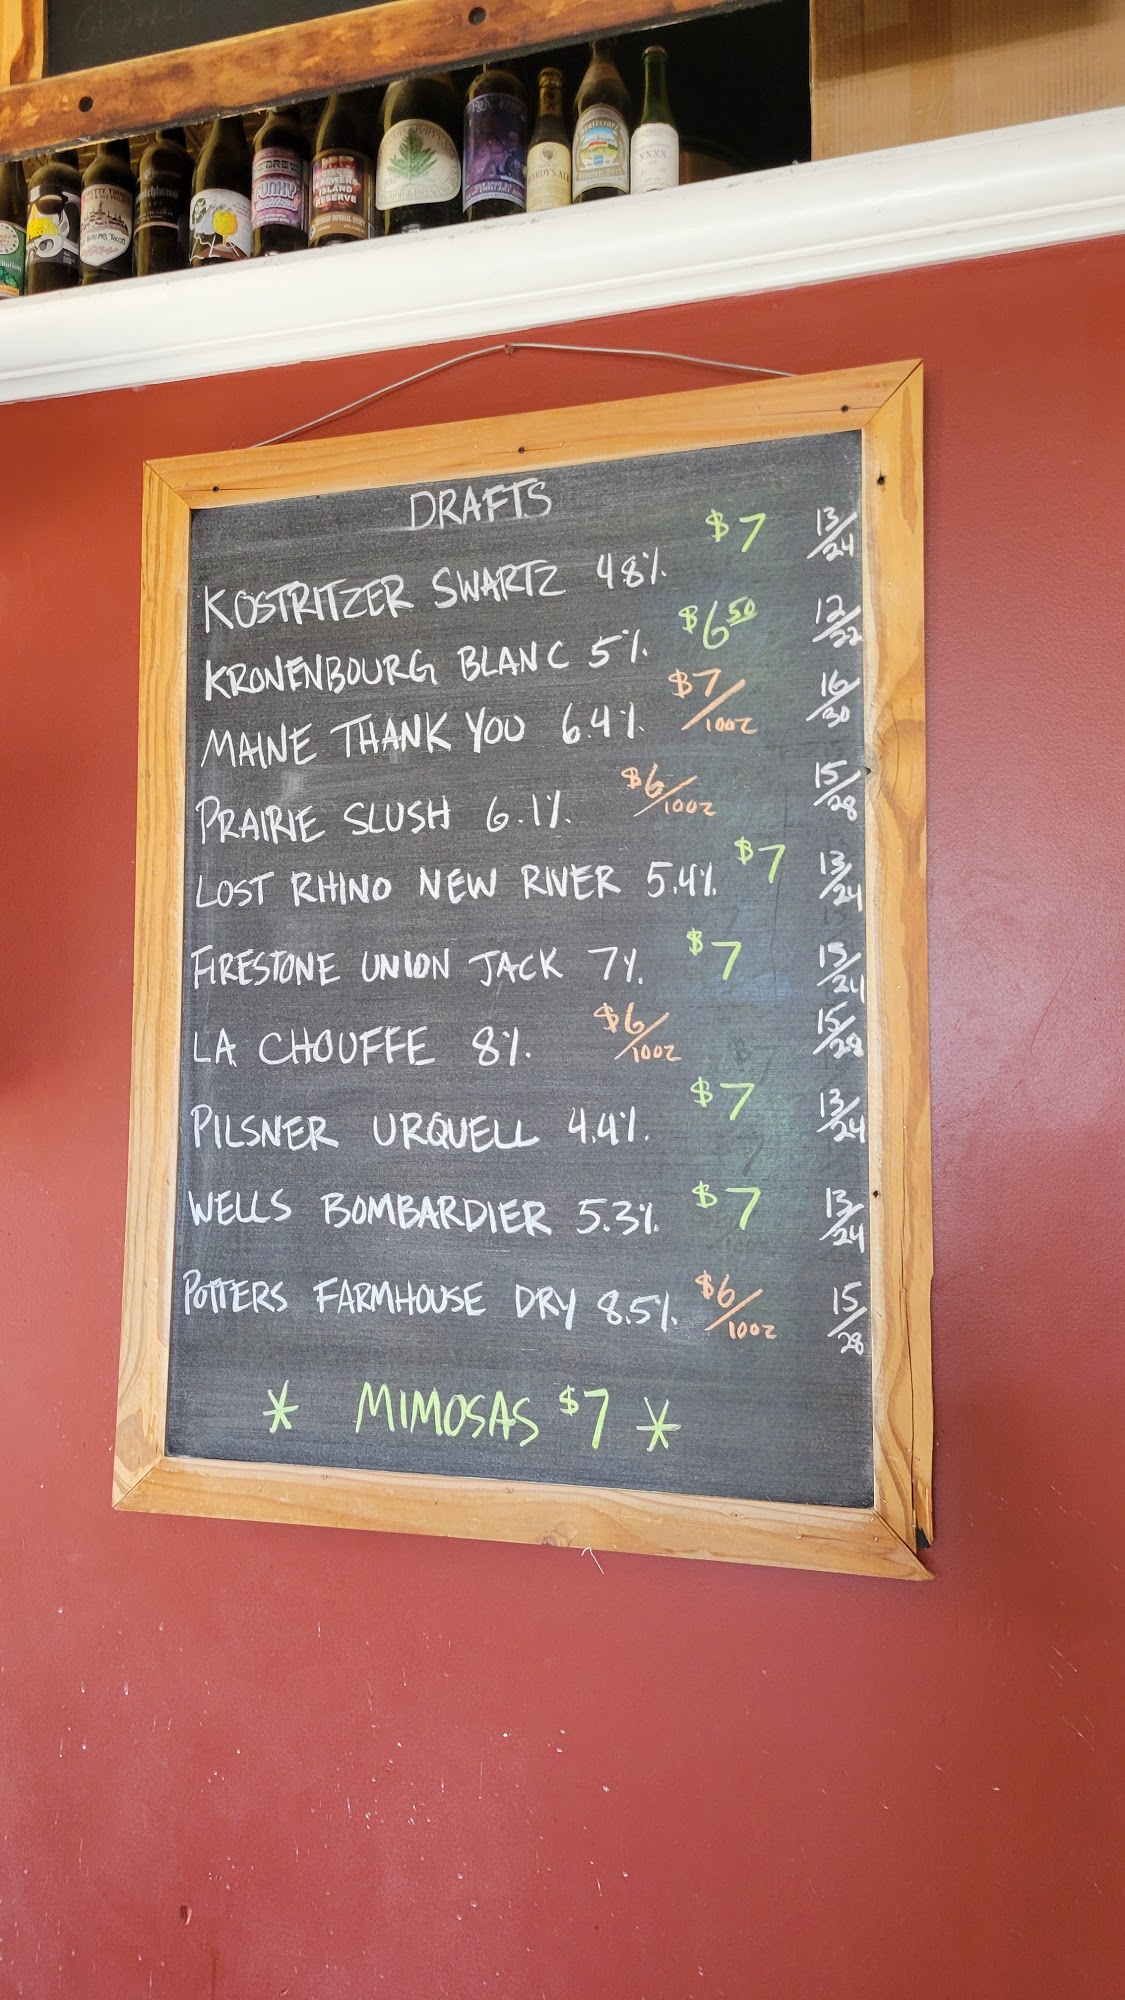 DRAFTS
KOSTRITZER SWARTZ 48% $7 13/24
KRONENBOURG BLANC 5% $6.50 12/22
MAINE THANK YOU 6.4% $7/10OZ 16/30
PRAIRIE SLUSH 6.1% $6/10OZ 15/28
LOST RHINO NEW RIVER 5.4% $7 13/24
FIRESTONE UNION JACK 7% $7 15/24
LA CHOUFFE 8% $6/10OZ 15/28
PILSNER URQUELL 4.4% $7 13/24
WELLS BOMBARDIER 5.3% $7 13/24
POTTERS FARMHOUSE DRY 8.5% $6/10OZ 15/28
* MIMOSAS $7 *
XXXX
ISLAND
RESERVE